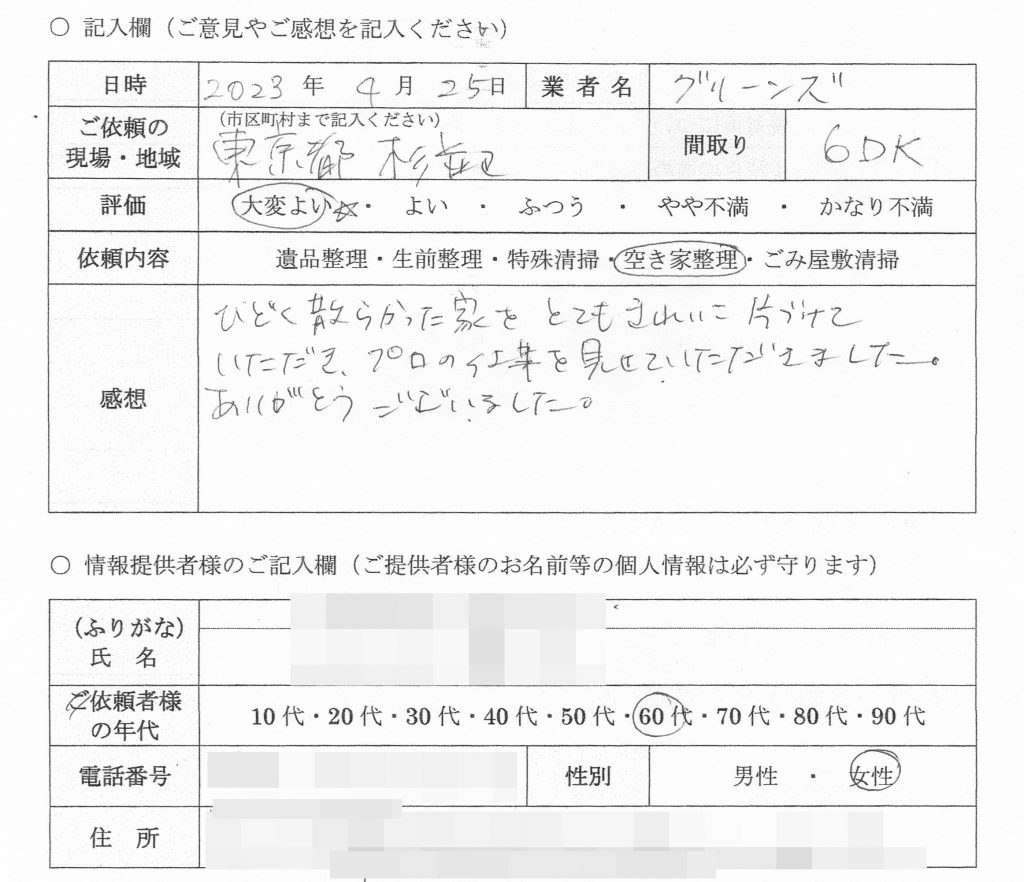 ○ 記入欄（ご意見やご感想を記入ください）
日時 2023 年 4 月 25 日 業者名 グリーンズ
ご依頼の現場・地域 （市区町村まで記入ください） 間取り 6DK
東京都 杉並区
評価 大変よい☆・ よい ・ ふつう ・ やや不満 ・ かなり不満
依頼内容 遺品整理・生前整理・特殊清掃・空き家整理・ごみ屋敷清掃
感想
ひどく散らかった家を とてもきれいに 片づけて
いただき、プロの仕事を見せていただきました。
ありがとう ございました。
○ 情報提供者様のご記入欄（ご提供者様のお名前等の個人情報は必ず守ります）
（ふりがな）
氏 名
ご依頼者様
の年代
10代・20代・30代・40代・50代・60代・70代・80代・90代
電話番号 性別 男性 ・ 女性
住 所